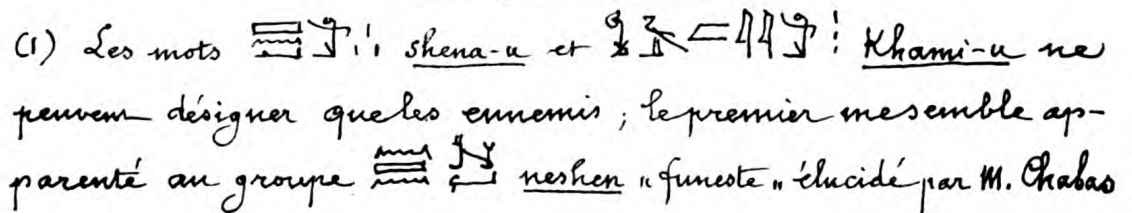 (1) Les mots shena-u et Khami-u ne
peuvent désigner que les ennemis ; le premier me semble ap-
parenté au groupe neshen "funeste" élucidé par M. Chabas